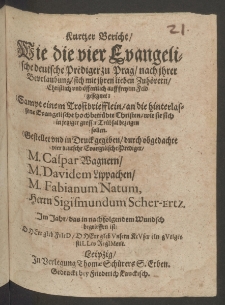 21.
Kurtzer Bericht/
Wie die vier Evangeli-
sche deutsche Prediger zu Prag/ nach jhrer
Beurlaubung/ sich mit jhren lieben Zuhörern/
Christlich und öffentlich auff freyem Feld
gesegnet:
Sampt einem Trostbrieflein/ an die hinterlas-
sene Evangelische hochbetrübte Christen/ wie sie sich
in jetziger gross Trübsal bezeigen
sollen.
Gestellet und in Druck gegeben/ durch obgedachte
vier deutsche Evangelische Prediger/
M. Caspar Wagnern/
M. Davidem Lippachen/
M. Fabianum Natum,
Herrn Sigismundum Scher-ertz.
Im Jahr/ das in nachfolgendem Wundsch
begriffen ist:
Leipzig/
In Verlegung Thomæ Schürers S. Erben.
Gedruckt bey Friederich Lanckisch.